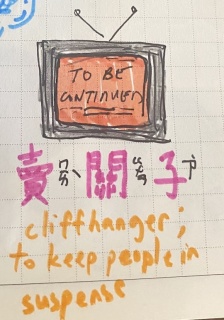 TO BE
CONTINUED
賣ㄇㄞˋ關ㄍㄨㄢ子ㄗˇ
cliffhanger;
to keep people in
suspense